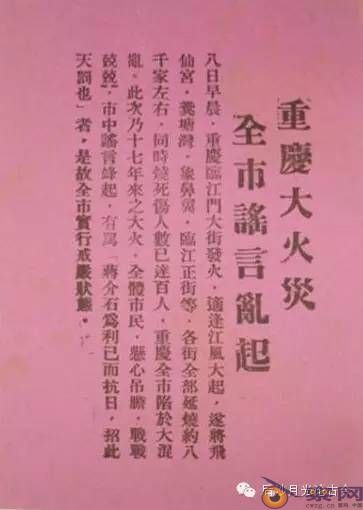 重慶大火災
全市謠言亂起
八日早晨，重慶臨江門大街發火，適逢江風大起，遂將飛
仙宮，糞塘灣，象鼻，臨江正街等，各街全部延燒約八
千家左右，同時燒死傷人數已達百人，重慶全市陷於大混
亂。此次乃十七年來之大火，全體市民，懸心吊膽，戰戰
兢兢，市中謠言蜂起，有罵「蔣介石爲利已而抗日，招此
天罰也」者，是故全市實行戒嚴狀態。